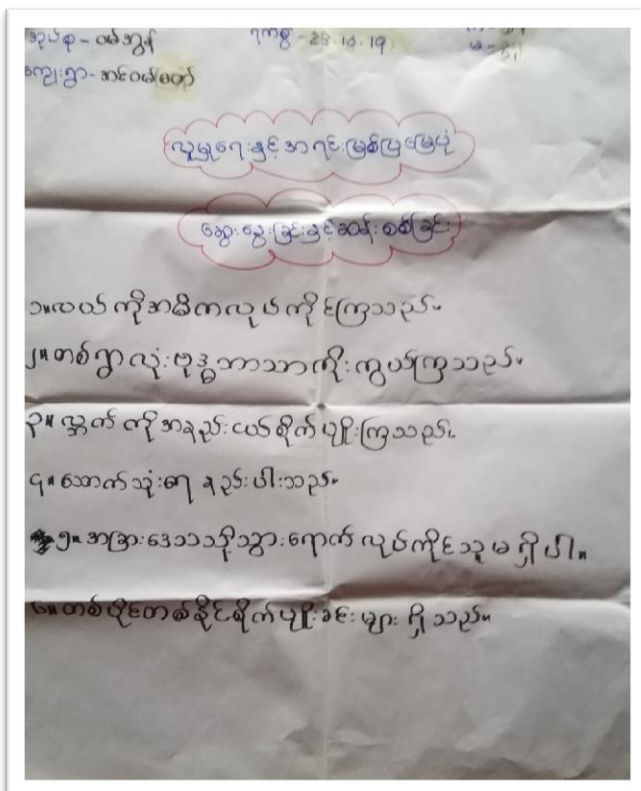 အုပ်စု - ဝမ်တွန် ရက်စွဲ - 28.10.19
ကျေးရွာ - အင်ဝယ်မတ်
လူမှုရေးနှင့်အရင်းမြစ်ပြမြေပုံ
ဆွေးနွေးခြင်းနှင့်ဆန်းစစ်ခြင်း
၁။ လယ်ကိုအဓိကလုပ်ကိုင်ကြသည်။
၂။ တစ်ရွာလုံးဗုဒ္ဓဘာသာကိုးကွယ်ကြသည်။
၃။ လ္ဘက်ကိုအနည်းငယ်စိုက်ပျိုးကြသည်။
၄။ သောက်သုံးရေ နည်းပါးသည်။
၅။ အခြားဒေသသို့သွားရောက်လုပ်ကိုင်သူမရှိပါ။
၆။ တစ်ပိုင်တစ်နိုင်စိုက်ပျိုးခင်းများရှိသည်။